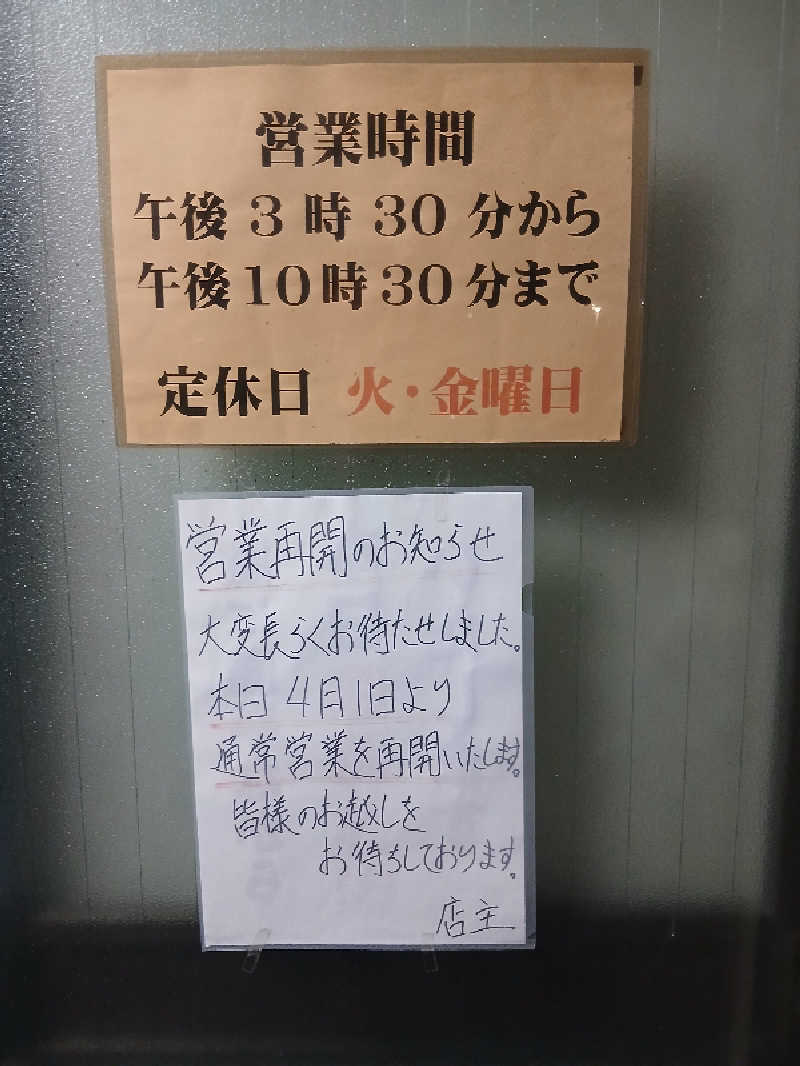 営業時間
午後3時30分から
午後10時30分まで
定休日 火・金曜日
営業再開のお知らせ
大変長らくお待たせしました。
本日 4月1日より
通常営業を再開いたします。
皆様のお越しを
お待ちしております。
店主